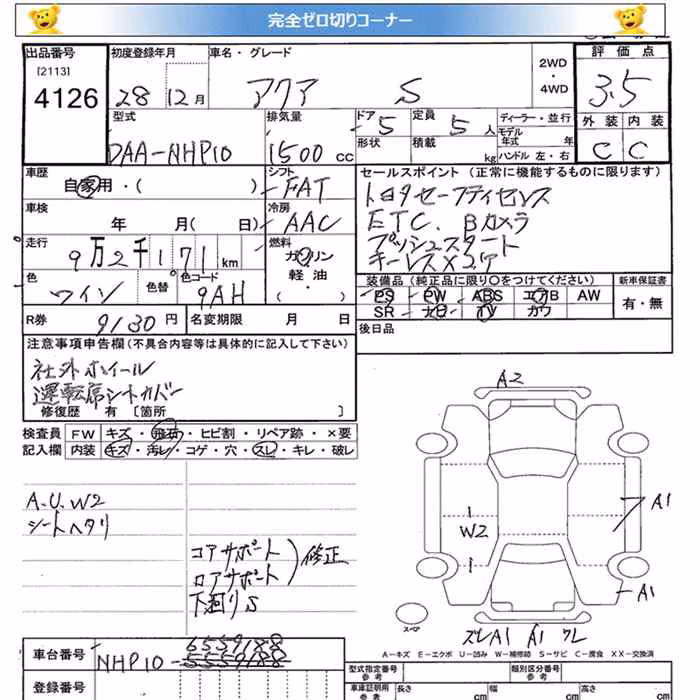 完全ゼロ切りコーナー
出品番号 初度登録年月 車名・グレード 2WD・4WD 評価点
[2113]
4126 28 12月 アクア S 3.5
型式 排気量 ドア 5 定員 5人 ディーラー・並行 外装 内装
形状 積載 kg モデル年式 年
DAA-NHP10 1500cc ハンドル 左・右 C C
車歴 自家用・( ) シフト FAT
セールスポイント (正常に機能するものに限ります)
車検 年 月( 日) 冷房 AAC
トヨタセーフティセンス
ETC. Bカメラ
プッシュスタート
走行 9万2千171km 燃料 ガソリン
軽油・( )
色 ワイン 色替 色コード 9AH
装備品(純正品に限り○をつけてください) 新車保証書
PS PW ABS エアB AW 有・無
SR ナビ TV カワ
R券 9130円 名変期限 月 日
後日品
注意事項申告欄(不具合内容等は具体的に記入して下さい)
社外ホイール
運転席シートカバー
修復歴 有 [箇所 ]
検査員 FW キズ・飛石・ヒビ割・リペア跡・×要
記入欄 内装 キズ・汚レ・コゲ・穴・スレ・キレ・破レ
A.U.W2
シートヘタリ
コアサポート
ロアサポート
修正
下廻りS
A2
A1
W2
A1
スペア
ズレA1 A1 ワレ
A-キズ E-エクボ U-凹み W-補修跡 S-サビ C-腐食 XX-交換済
車台番号 NHP10-6559188
5559188
登録番号
型式指定番号 参考 類別区分番号 参考
車庫証明用 参考 長さ cm 幅 cm 高さ cm